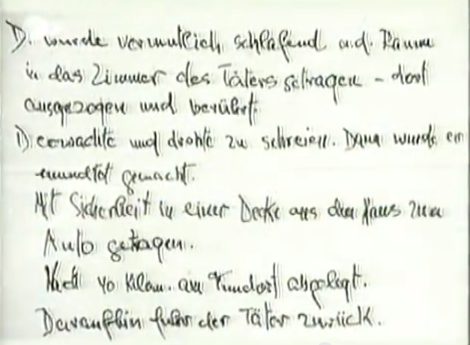 D. wurde vermutlich schlafend a.d. Raum
in das Zimmer des Täters getragen - dort
ausgezogen und berührt.
D. erwachte und drohte zu schreien. Dann wurde er
mundtot gemacht.
Mit Sicherheit in einer Decke aus dem Haus zum
Auto getragen.
Nach 40 Kilom. am Fundort abgelegt.
Daraufhin fuhr der Täter zurück.